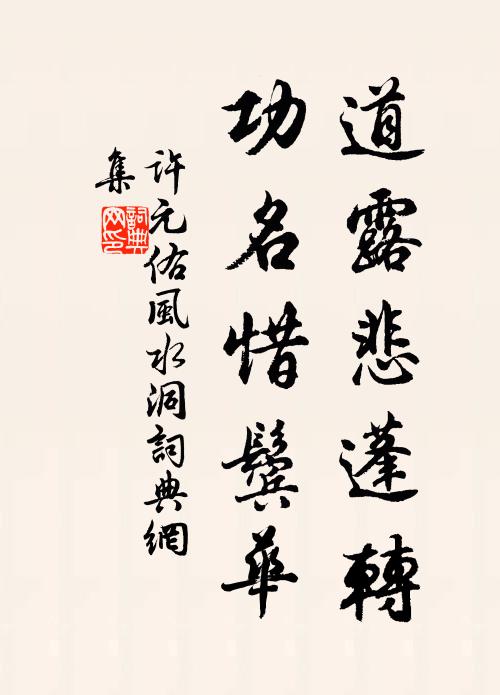 道露悲蓬轉
功名惜鬢華
許元佑風水洞詞典網
集
詞典网印